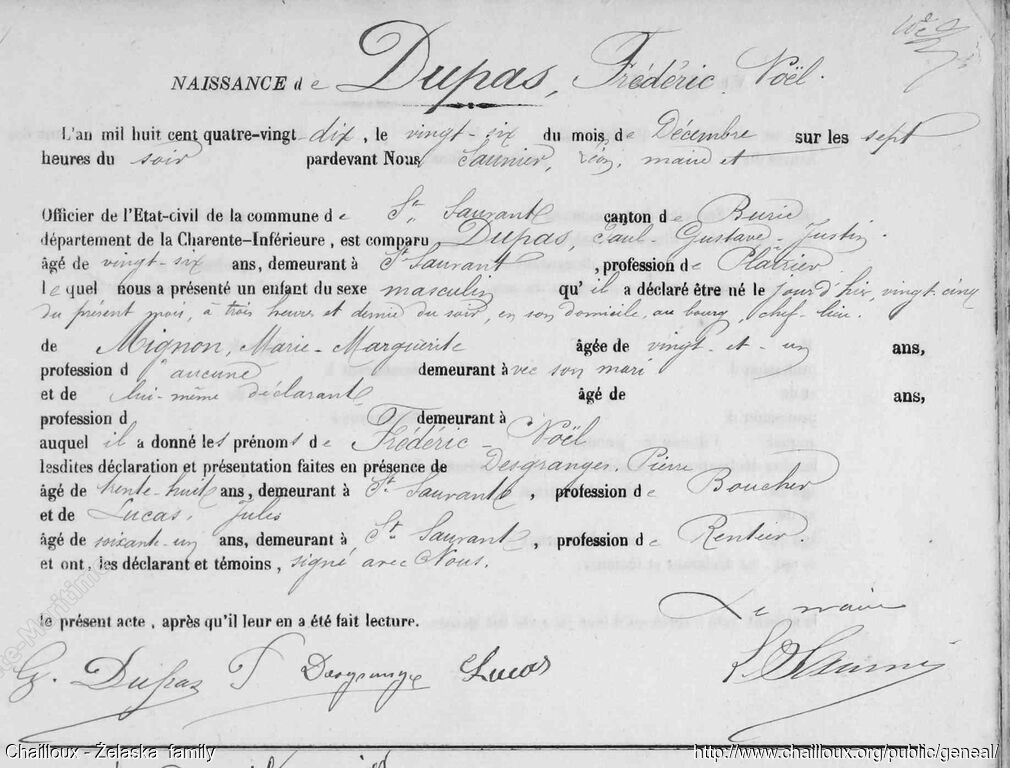 NAISSANCE de Dupas, Frédéric Noël.
L'an mil huit cent quatre-vingt dix, le vingt-six du mois de Décembre sur les sept
heures du soir pardevant Nous Saunier, Léon, maire et
Officier de l'Etat-civil de la commune de St Sauvant canton de Burie
département de la Charente-Inférieure, est comparu Dupas, Paul-Gustave-Justin.
âgé de vingt-six ans, demeurant à St Sauvant, profession de Platrier.
lequel nous a présenté un enfant du sexe masculin qu'il a déclaré être né le jour d'hier, vingt-cinq
du présent mois, à trois heures et demie du soir, en son domicile, au bourg, chef-lieu.
de Mignon, Marie-Marguerite âgée de vingt-et-un ans,
profession d'aucune demeurant avec son mari
et de lui-même déclarant, âgé de ans,
profession d demeurant à
auquel il a donné les prénoms de Frédéric-Noël
lesdites déclaration et présentation faites en présence de Desgranges, Pierre
âgé de trente-huit ans, demeurant à St Sauvant, profession de Boucher
et de Lucas, Jules
âgé de soixante-un ans, demeurant à St Sauvant, profession de Rentier.
et ont, les déclarant et témoins, signé avec Nous.
le présent acte, après qu'il leur en a été fait lecture.
Le maire
G. Dupas P Desgranges Lucas L Saunier
Chailloux - Želaska family http://www.chailloux.org/public/geneal/